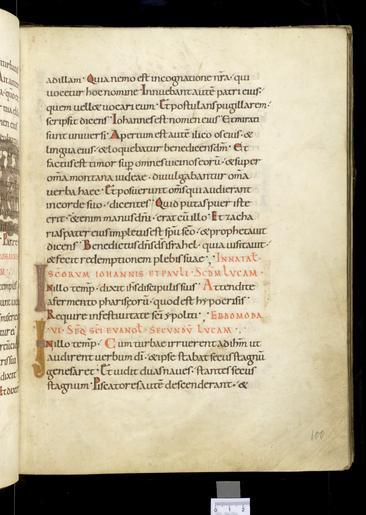 adillam. Quia nemo est incognatione tua. qui
vocetur hoc nomine Innuebant autē patri eius.
quem vellet vocari eum. Et postulans pugillarem.
scripsit dicens Iohannes est nomen eius Et mirati
sunt universi. Apertum est autē ilico os eius. &
lingua eius. & loquebatur benedicens dm̄. Et
factus est timor sup omnes vicinos eorū. & super
omīa montana iudeae. divulgabantur omīa
verba haec. Et posuerunt omīs qui audierant
in corde suo. dicentes Quid putas puer iste
erit. & enim manus dnī. erat cū illo. Et zacha
rias pater eius impletus est spū scō. & prophetavit
dicens Benedictus dns ds israhel. quia visitavit.
& fecit redemptionem plebis suae. IN NATAL
SCORUM IOHANNIS ET PAULI. SCDM LUCAM.
In illo temp. dixit ihs discipulis suis Attendite
a fermento pharisęorū. quod est hypocrisis
Require in festivitate scī ypoliti. EBDOMODA
VI. SEQ SCI EVANGL. SECUNDV LUCAM.
In illo temp. Cum turbae irruerent ad ihm̄. ut
audirent verbum dī. & ipse stabat secus stagnū
genesar&. Et vidit duas naves. stantes secus
stagnum. Piscatores autē descenderant. &
100